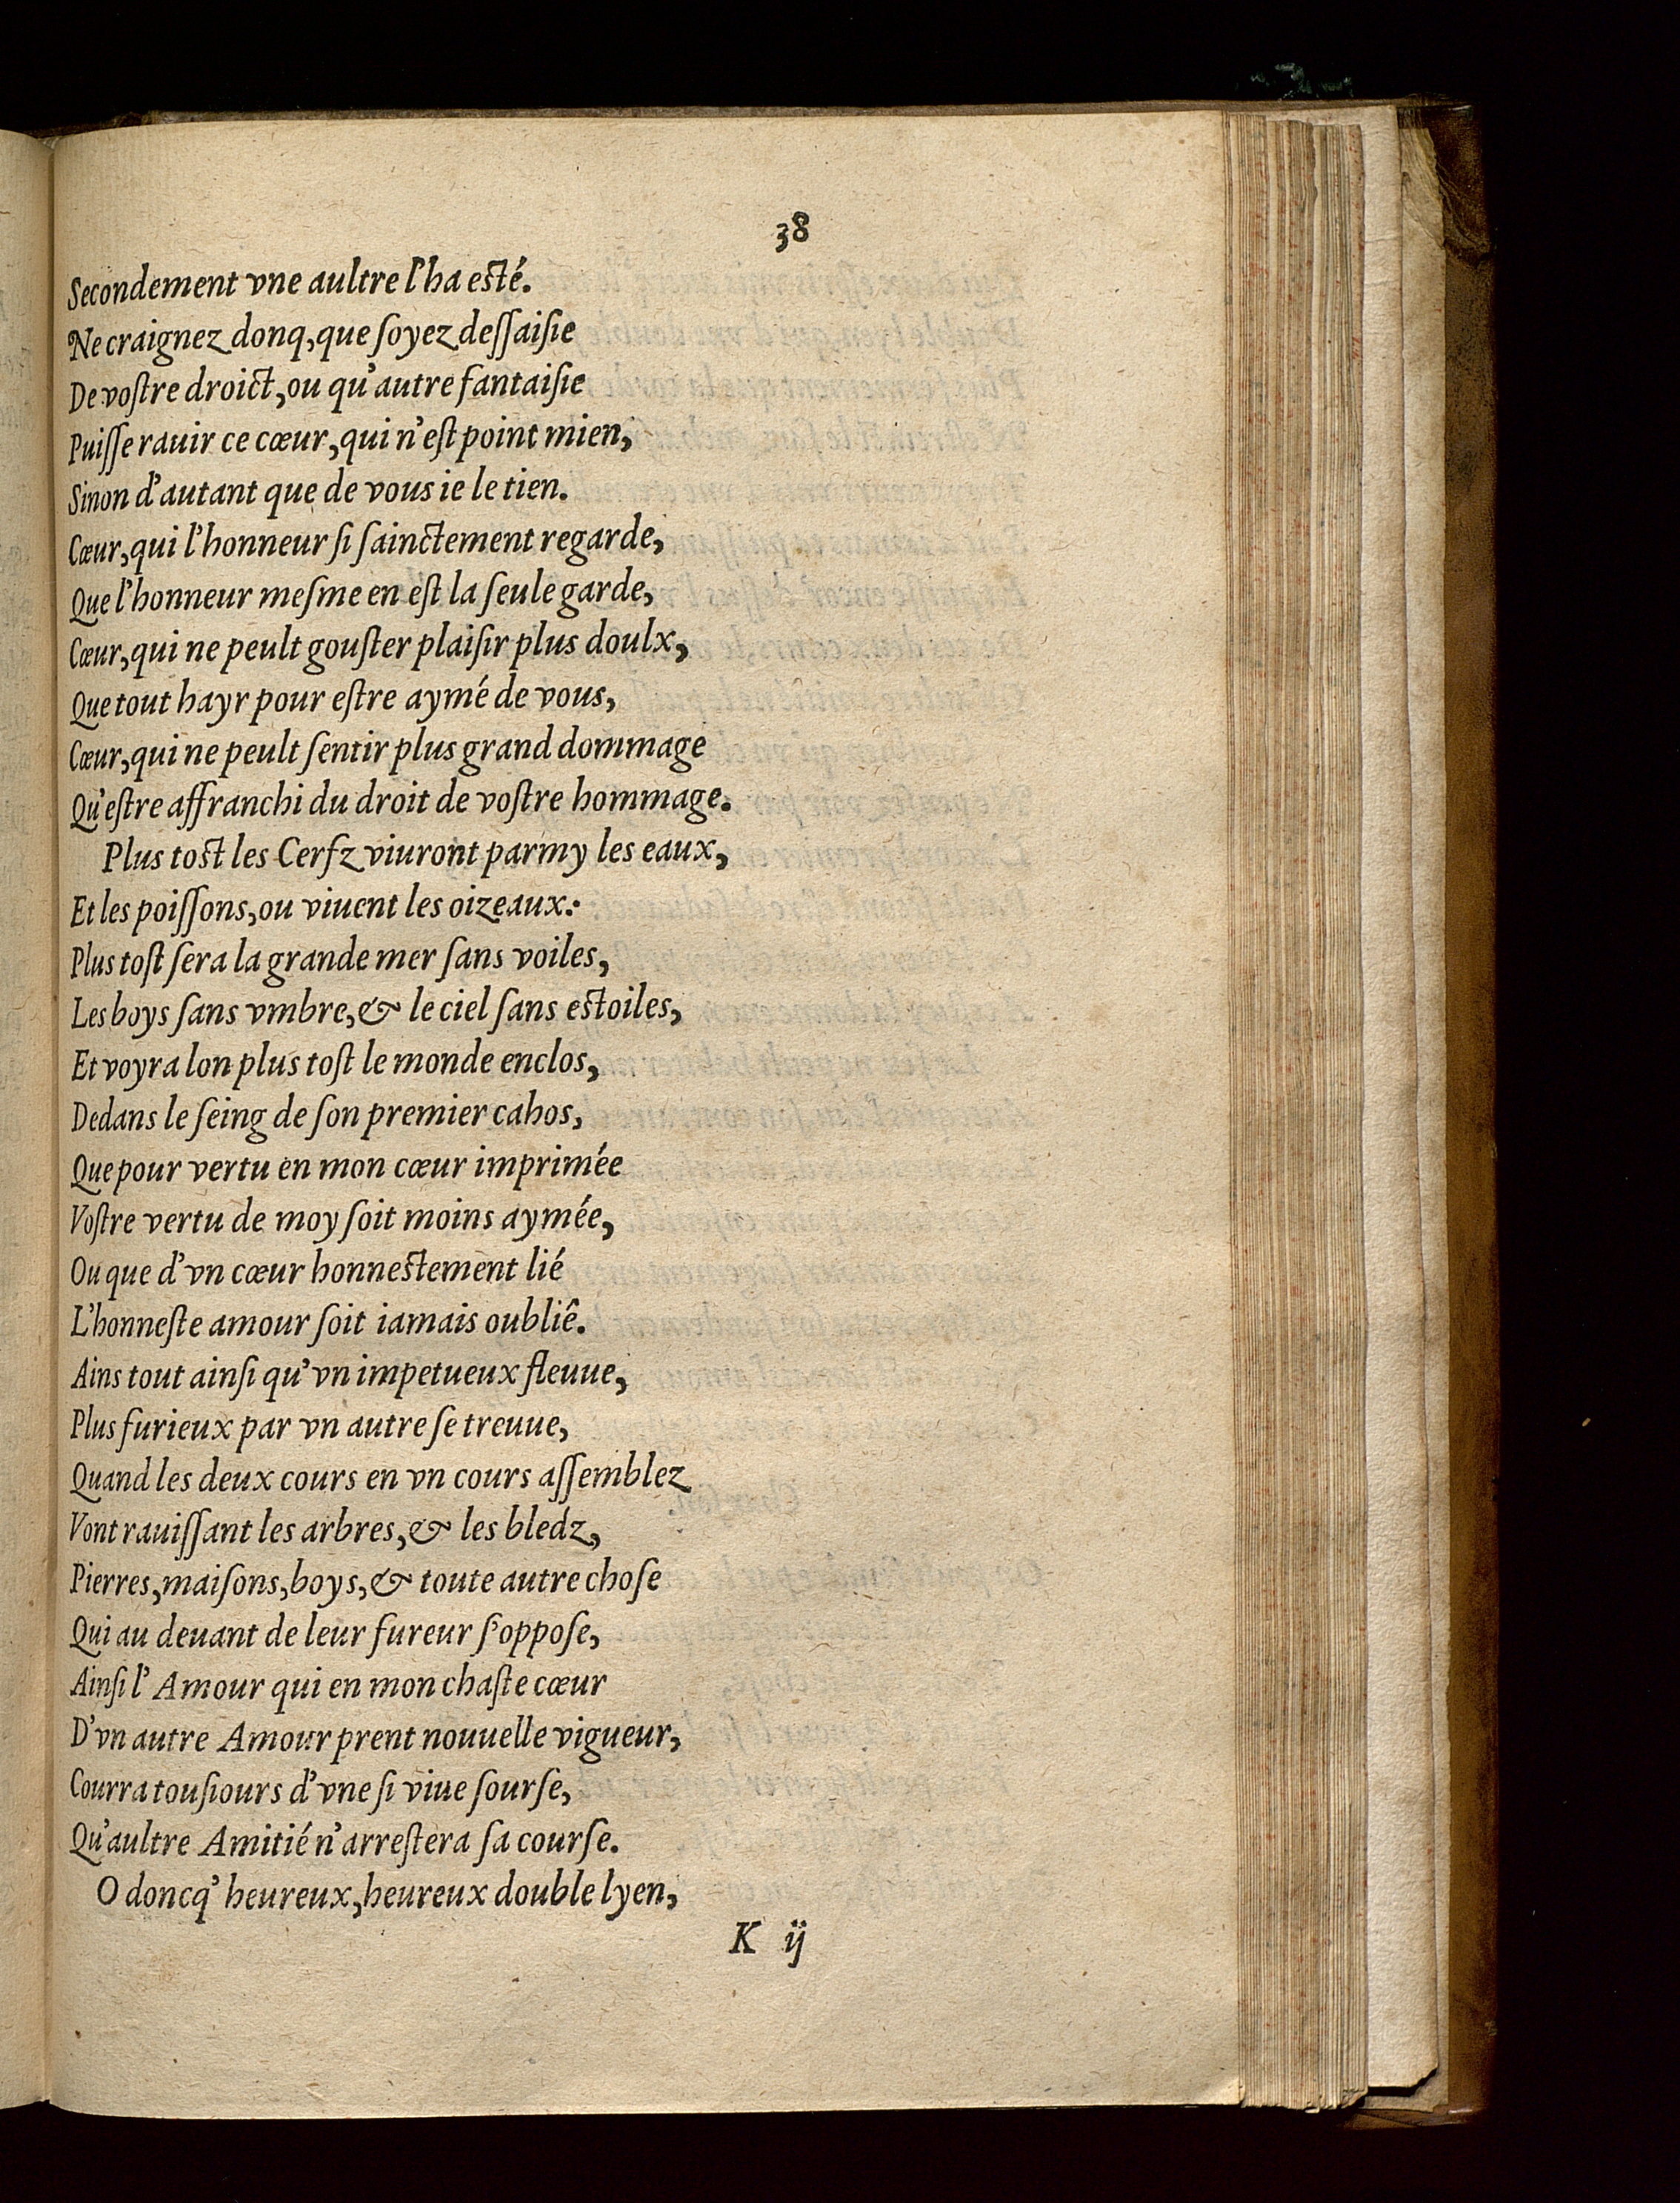 38
Secondement vne aultre l'ha esté.
Ne craignez donq, que ſoyez deſſaiſie
De voſtre droict, ou qu'autre fantaiſie
Puiſſe rauir ce cœur, qui n'eſt point mien,
Sinon d'autant que de vous ie le tien.
Cœur, qui l'honneur ſi ſainctement regarde,
Que l'honneur meſme en eſt la ſeule garde,
Cœur, qui ne peult gouſter plaiſir plus doulx,
Que tout hayr pour eſtre aymé de vous,
Cœur, qui ne peult ſentir plus grand dommage
Qu'eſtre affranchi du droit de voſtre hommage.
Plus toſt les Cerfz viuront parmy les eaux,
Et les poiſſons, ou viuent les oizeaux:
Plus toſt ſera la grande mer ſans voiles,
Les boys ſans vmbre, & le ciel ſans eſtoiles,
Et voyra lon plus toſt le monde enclos,
Dedans le ſeing de ſon premier cahos,
Que pour vertu en mon cœur imprimée
Voſtre vertu de moy ſoit moins aymée,
Ou que d'vn cœur honneſtement lié
L'honneſte amour ſoit iamais oubliê.
Ains tout ainſi qu'vn impetueux fleuue,
Plus furieux par vn autre ſe treuue,
Quand les deux cours en vn cours aſſemblez
Vont rauiſſant les arbres, & les bledz,
Pierres, maiſons, boys, & toute autre choſe
Qui au deuant de leur fureur ſ'oppoſe,
Ainſi l'Amour qui en mon chaſte cœur
D'vn autre Amour prent nouuelle vigueur,
Courra touſiours d'vne ſi viue ſourſe,
Qu'aultre Amitié n'arreſtera ſa courſe.
O doncq' heureux, heureux double lyen,
K ij